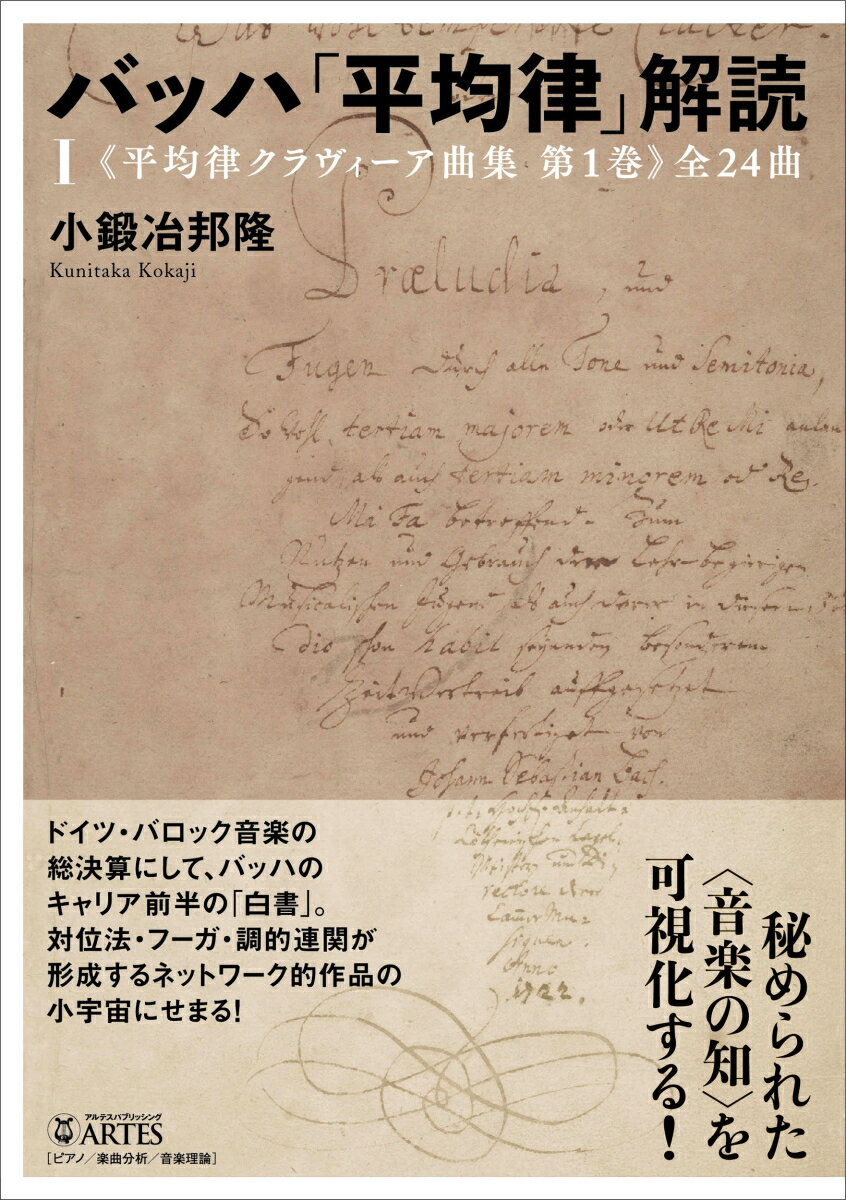 バッハ「平均律」解読
I《平均律クラヴィーア曲集 第1巻》全24曲
小鍛冶邦隆
Kunitaka Kokaji
Præludia, und
Fugen durch alle Tone und Semitonia,
So wohl tertiam majorem oder Ut Re Mi anlan
gend, als auch tertiam minorem od Re
Mi Fa betreffend. Zum
Nutzen und Gebrauch der Lehr-begierigen
Musicalischen Jugend als auch derer in diesem
dio schon habil seyenden besonderem
Zeit Vertreib auffgesetzet
und verfertiget von
Johann Sebastian Bach.
Anno
1722.
ドイツ・バロック音楽の
総決算にして、バッハの
キャリア前半の「白書」。
対位法・フーガ・調的連関が
形成するネットワーク的作品の
小宇宙にせまる！
秘められた
〈音楽の知〉を
可視化する！
アルテスパブリッシング
ARTES
［ピアノ／楽曲分析／音楽理論］